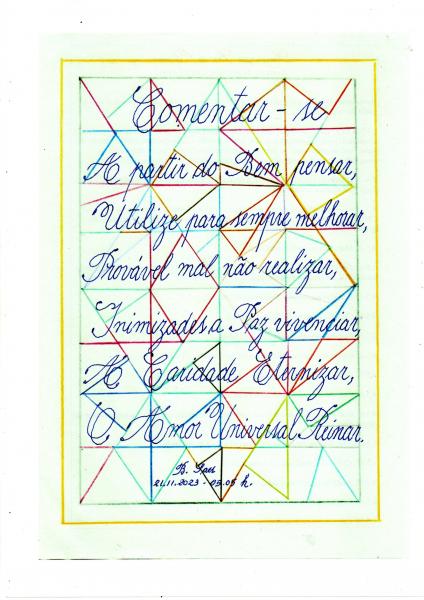 Comentar-se
A partir do Bem pensar,
Utilize para sempre melhorar,
Provável mal não realizar,
Inimizades a Paz vivenciar,
A Caridade Eternizar,
O Amor Universal Reinar.
B.
21.11.2023 - 05.05 h.